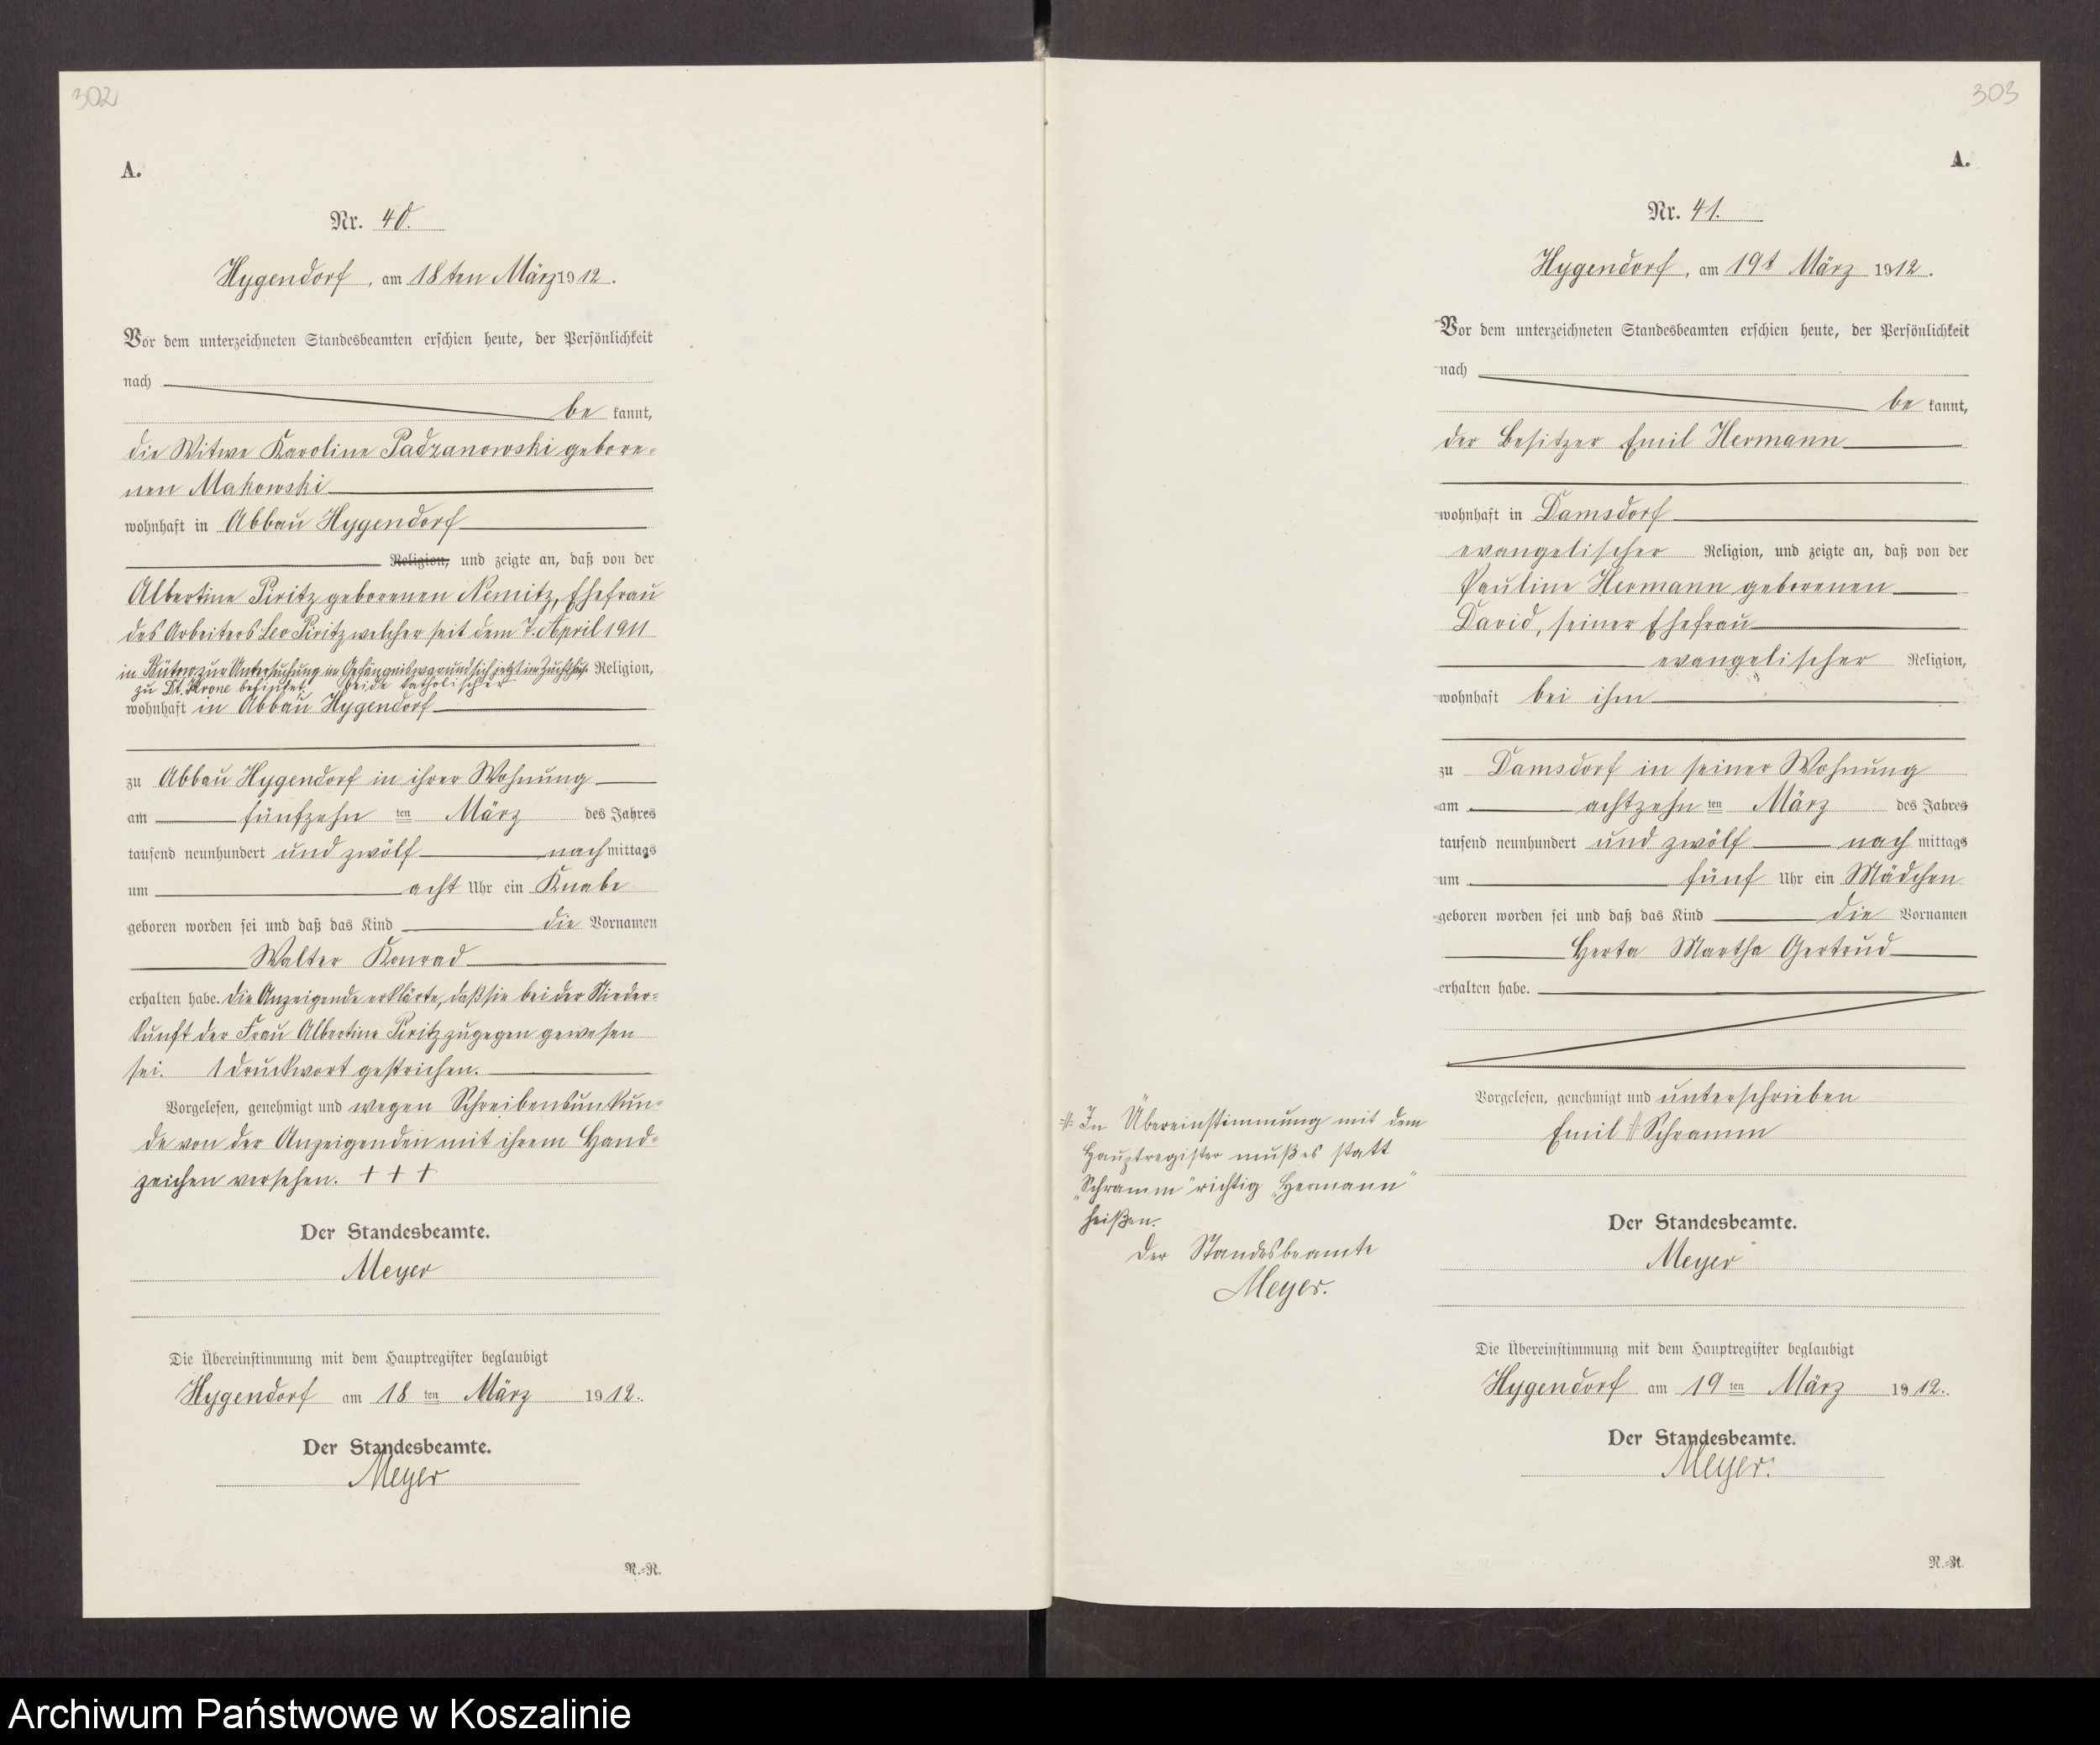 302
A.
Nr. 40.
Hygendorf, am 18ten März 1912.
Vor dem unterzeichneten Standesbeamten erschien heute, der Persönlichkeit
nach
be kannt,
die Witwe Karoline Padzanowski gebore-
nen Makowski
wohnhaft in Abbau Hygendorf
Religion, und zeigte an, daß von der
Albertine Piritz geborenen Nemitz, Ehefrau
des Arbeiters Leo Piritz welcher seit dem 7. April 1911
in Bütow zur Untersuchung im Gefängnis war und sich jetzt im Zuchthse. Religion,
zu Dt. Krone befindet. beide katholischer
wohnhaft in Abbau Hygendorf
zu Abbau Hygendorf in ihrer Wohnung
am fünfzehn ten März des Jahres
tausend neunhundert und zwölf nach mittags
um acht Uhr ein Knabe
geboren worden sei und daß das Kind die Vornamen
Walter Konrad
erhalten habe. Die Anzeigende erklärte, daß sie bei der Nieder-
kunft der Frau Albertine Piritz zugegen gewesen
sei. 1 Druckwort gestrichen.
Vorgelesen, genehmigt und wegen Schreibensunkun-
de von der Anzeigenden mit ihrem Hand-
zeichen versehen. + + +
Der Standesbeamte.
Meyer
Die Übereinstimmung mit dem Hauptregister beglaubigt
Hygendorf am 18 ten März 1912.
Der Standesbeamte.
Meyer
R.-R.
303
A.
Nr. 41.
Hygendorf, am 19t März 1912.
Vor dem unterzeichneten Standesbeamten erschien heute, der Persönlichkeit
nach
be kannt,
der Besitzer Emil Hermann
wohnhaft in Damsdorf
evangelischer Religion, und zeigte an, daß von der
Pauline Hermann geborenen
David, seiner Ehefrau
evangelischer Religion,
wohnhaft bei ihm
zu Damsdorf in seiner Wohnung
am achtzehn ten März des Jahres
tausend neunhundert und zwölf nach mittags
um fünf Uhr ein Mädchen
geboren worden sei und daß das Kind die Vornamen
Herta Martha Gertrud
erhalten habe.
Vorgelesen, genehmigt und unterschrieben
Emil # Schramm
# In Übereinstimmung mit dem
Hauptregister muß es statt
"Schramm" richtig "Hermann"
heißen.
Der Standesbeamte
Meyer.
Der Standesbeamte.
Meyer
Die Übereinstimmung mit dem Hauptregister beglaubigt
Hygendorf am 19 ten März 1912.
Der Standesbeamte.
Meyer.
R.-R.
Archiwum Państwowe w Koszalinie